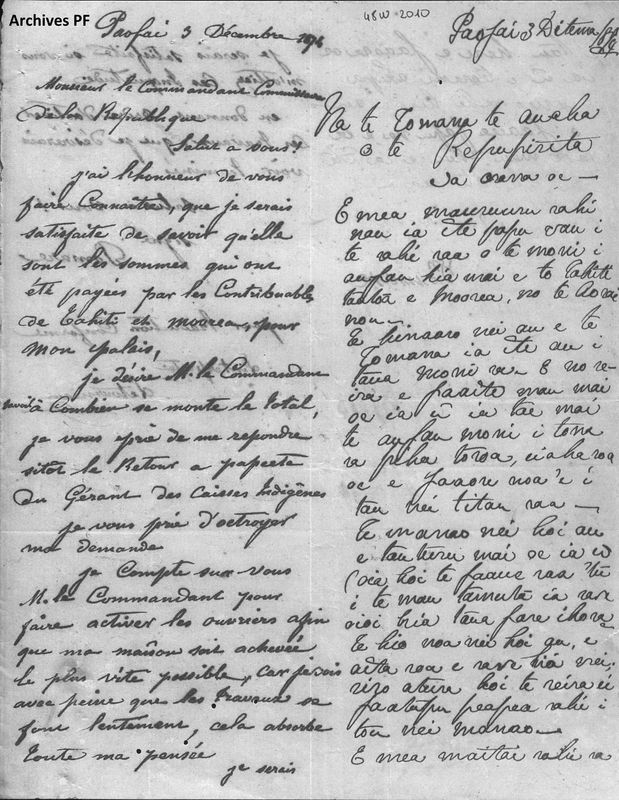 Archives PF
48W-2010
Paofai 3 Décembre 1876
Monsieur le Commandant Commissaire
de la République
Salut a vous!
j'ai l'honneur de vous
faire Connaître, que je serais
satisfaite de savoir qu'elle
sont les sommes qui ont
été payées par les Contribuables
de Tahiti et moorea, pour
mon palais,
je désire M. le Commandant
savoir à Combien se monte le total,
je vous prie de me repondre
sitôt le Retour a papeete
du Gérant des Caisses Indigènes
je vous prie d'octroyer
ma demande
je Compte sur vous
M. le Commandant pour
faire activer les ouvriers afin
que ma maison soit achevée
le plus vite possible, car je vois
avec peine que les travaux se
font lentement, cela absorbe
toute ma pensée
je serais
Paofai 3 Ditema
Na te Tomana te auaha
o te Repupirita
Ia ora na oe —
E mea mauruuru rahi
nau ia ite papu vau i
te rahi raa o te moni i
aufau hia mai e to Tahiti
e Moorea, no te Aorai
nou —
Te hinaaro nei au e te
Tomana ia ite au i
taua moni ra. E no re
ira e faaite mau mai
oe ia'u ia tae mai
te aufau moni i tona
ra piha toroa, eiaha roa
oe e faaore noa'e i
tau nei titau raa —
Te manao nei hoi au
e tauturu mai oe ia'u
oia hoi te faaue raa 'tu
i te mau tamuta ia rave
oioi hia taua fare ihora
Te hio noa nei hoi au, e
aita roa e rave hia nei.
hoi te reira ei
faatupu peapea rahi i
tou nei manao —
E mea maitai rahi ra